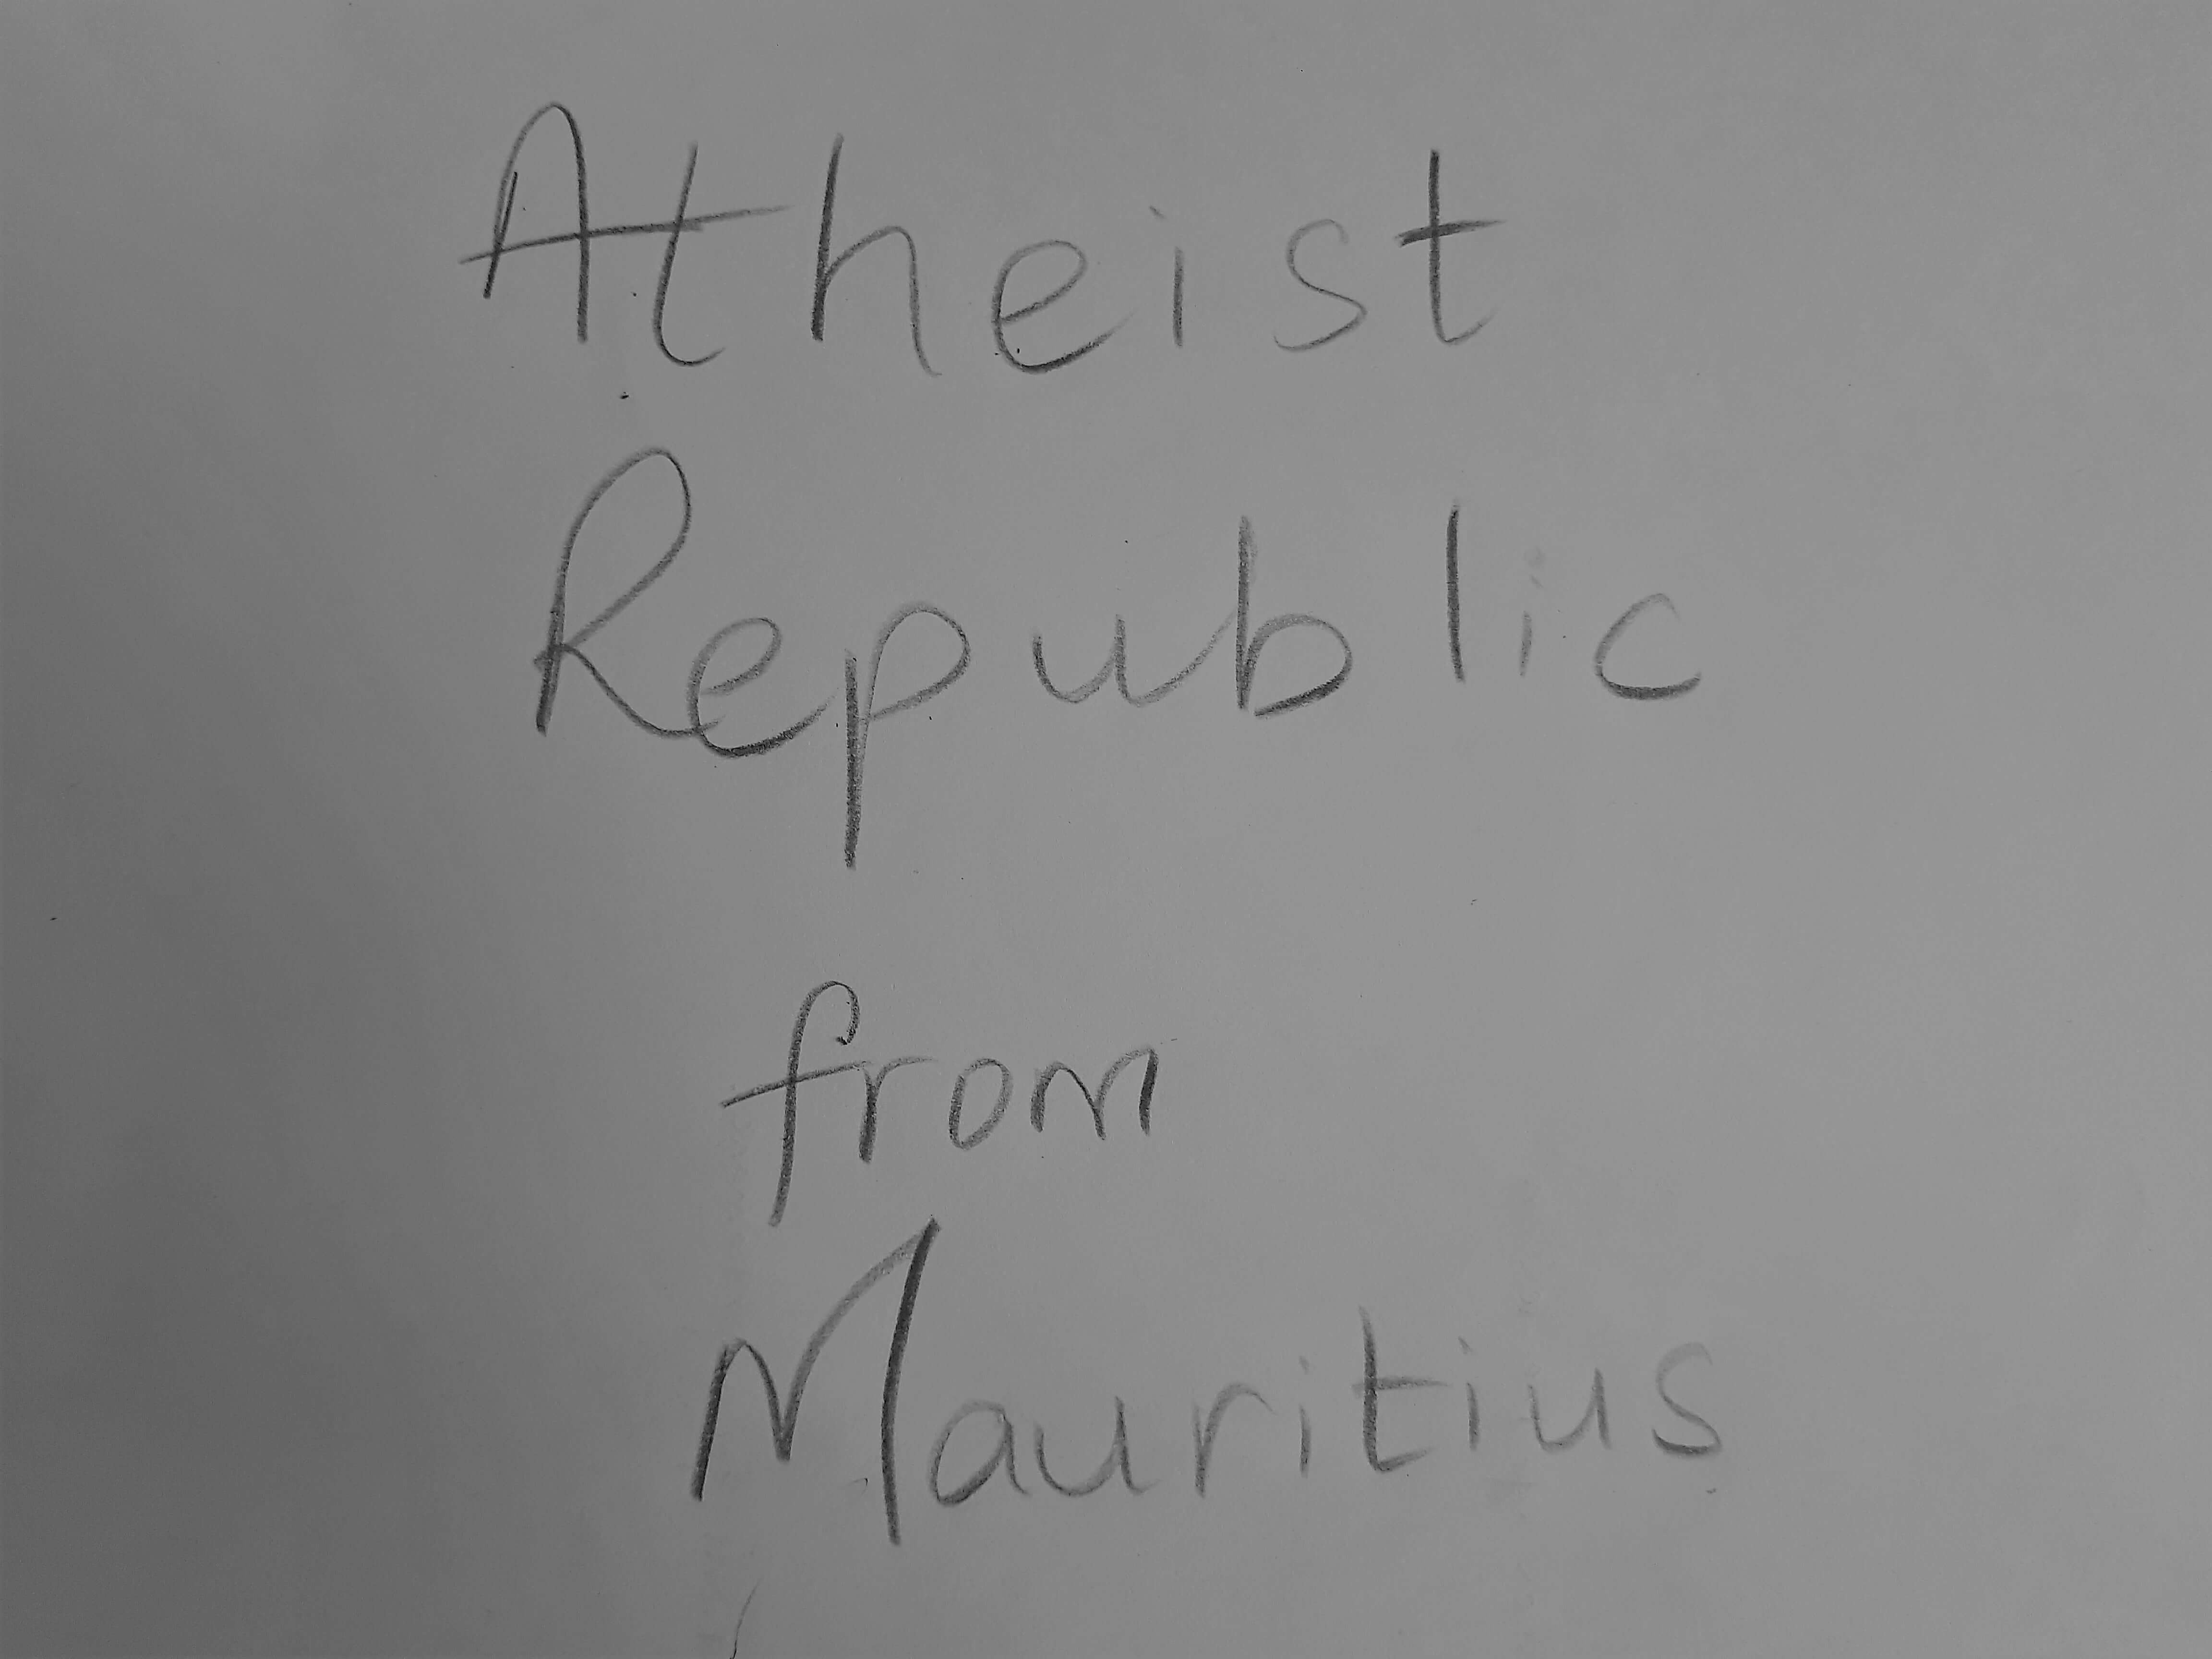 Atheist
Republic
from
Mauritius